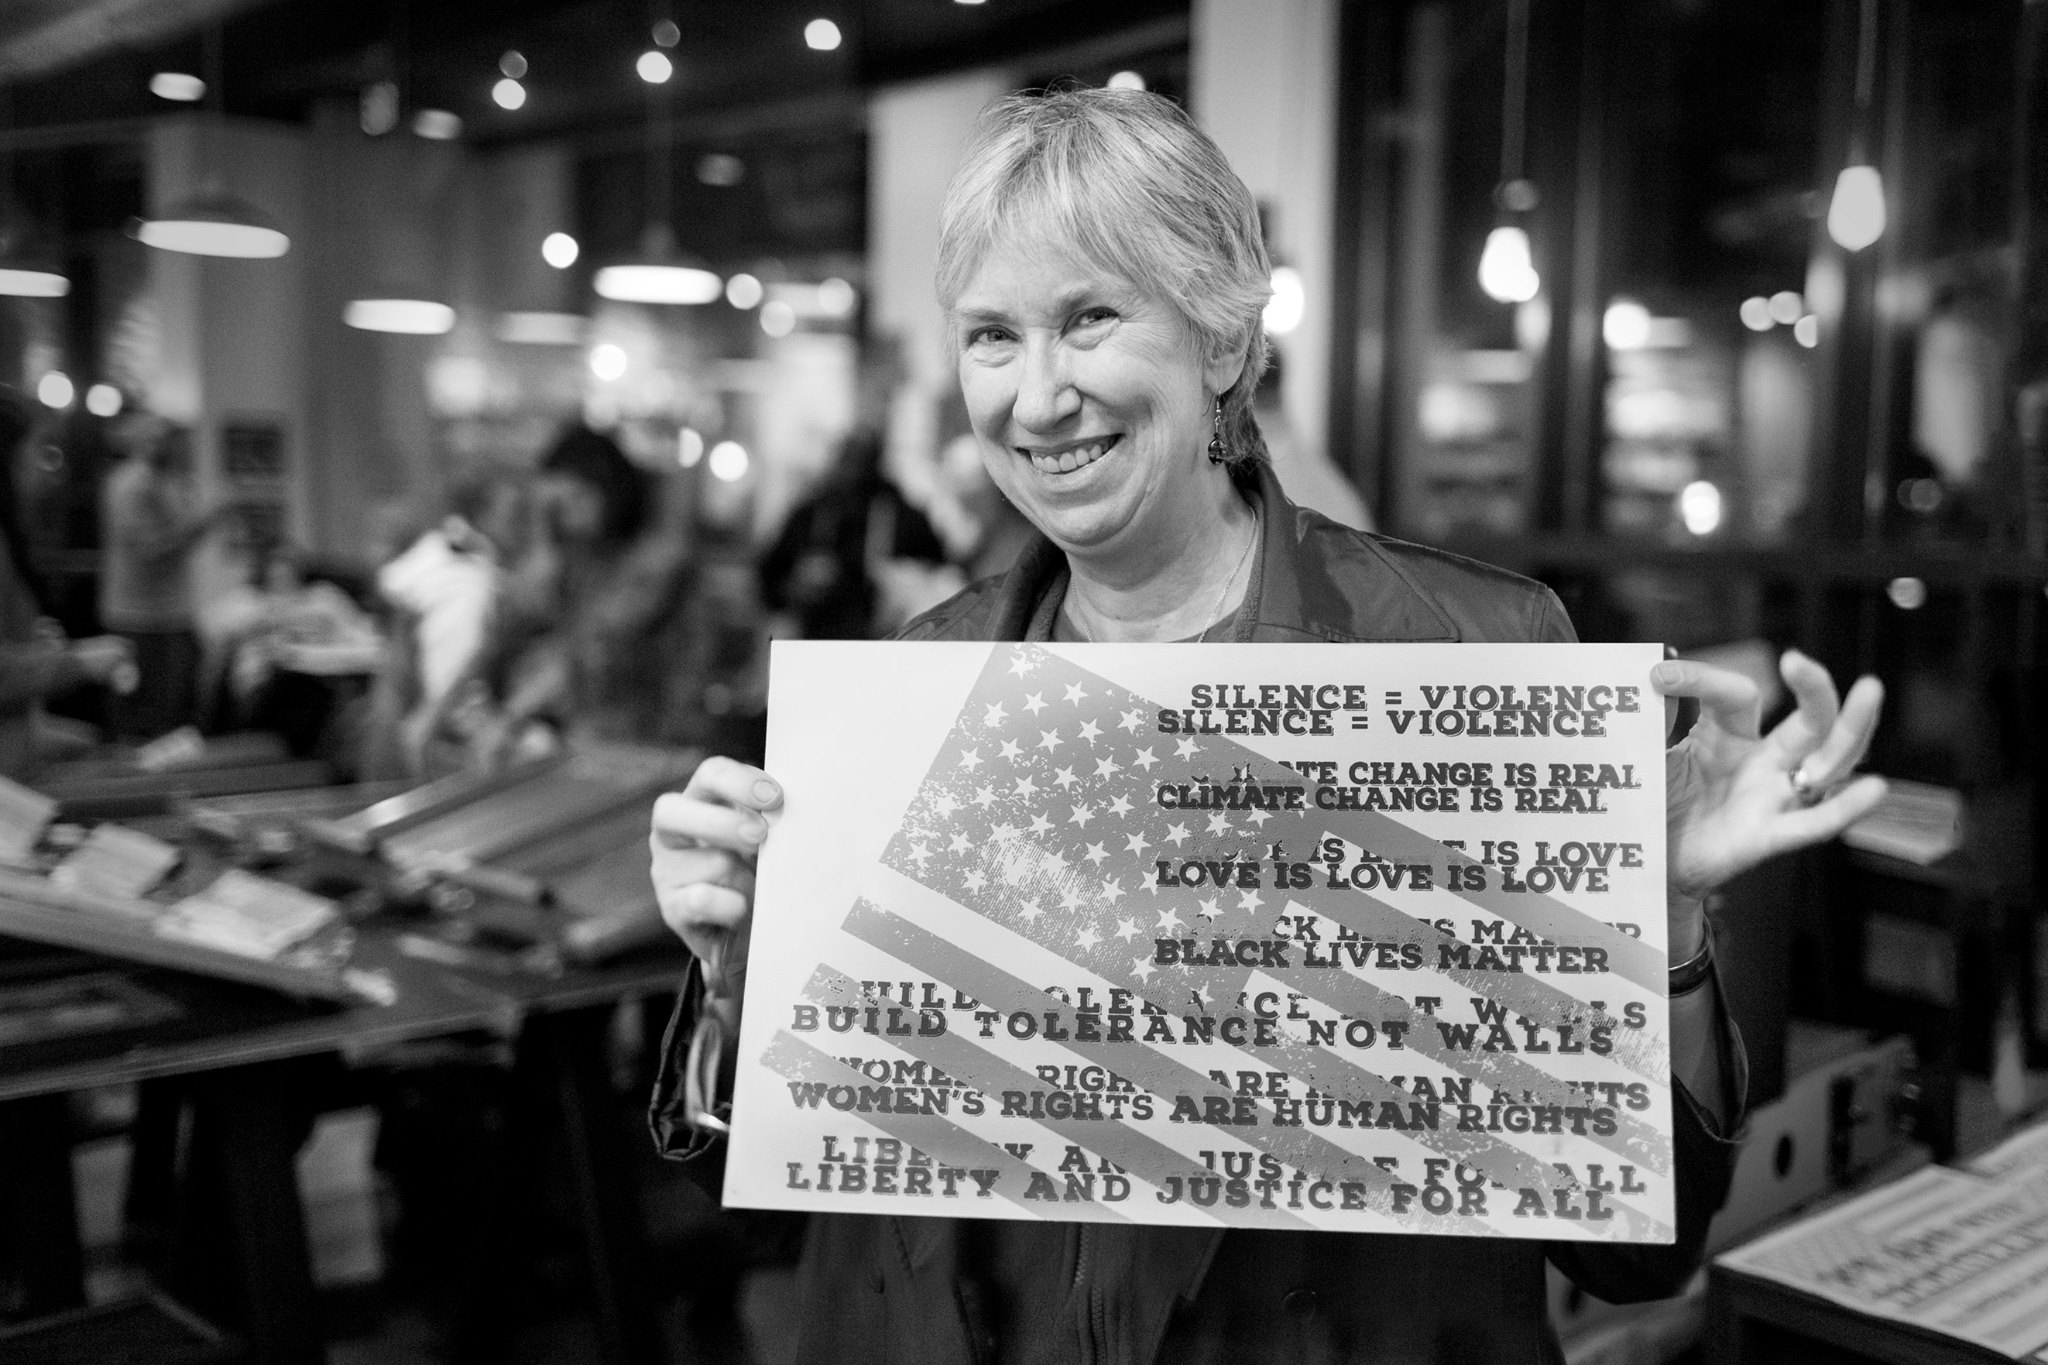 SILENCE = VIOLENCE
SILENCE = VIOLENCE
CHANGE IS REAL
CLIMATE CHANGE IS REAL
IS IS LOVE
LOVE IS LOVE IS LOVE
BLACK LIVES MATTER
BUILD TOLERANCE NOT WALLS
ARE
WOMEN'S RIGHTS ARE HUMAN RIGHTS
LIBERTY AND JUSTICE FOR ALL